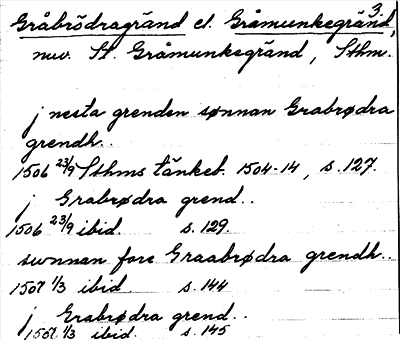 3.
Gråbrödragränd el. Gråmunkegränd,
nuv. St. Gråmunkegränd, Sthm.
j nesta grenden sønnan Grabrødra
grendh..
1506 23/9 Sthms tänkeb. 1504-14, s. 127.
j Grabrødra grend..
1506 23/9 ibid. s. 129.
swnnan fore Graabrødra grendh..
1507 1/3 ibid. s. 144
j Grabrødra grend..
1507 1/3 ibid. s. 145